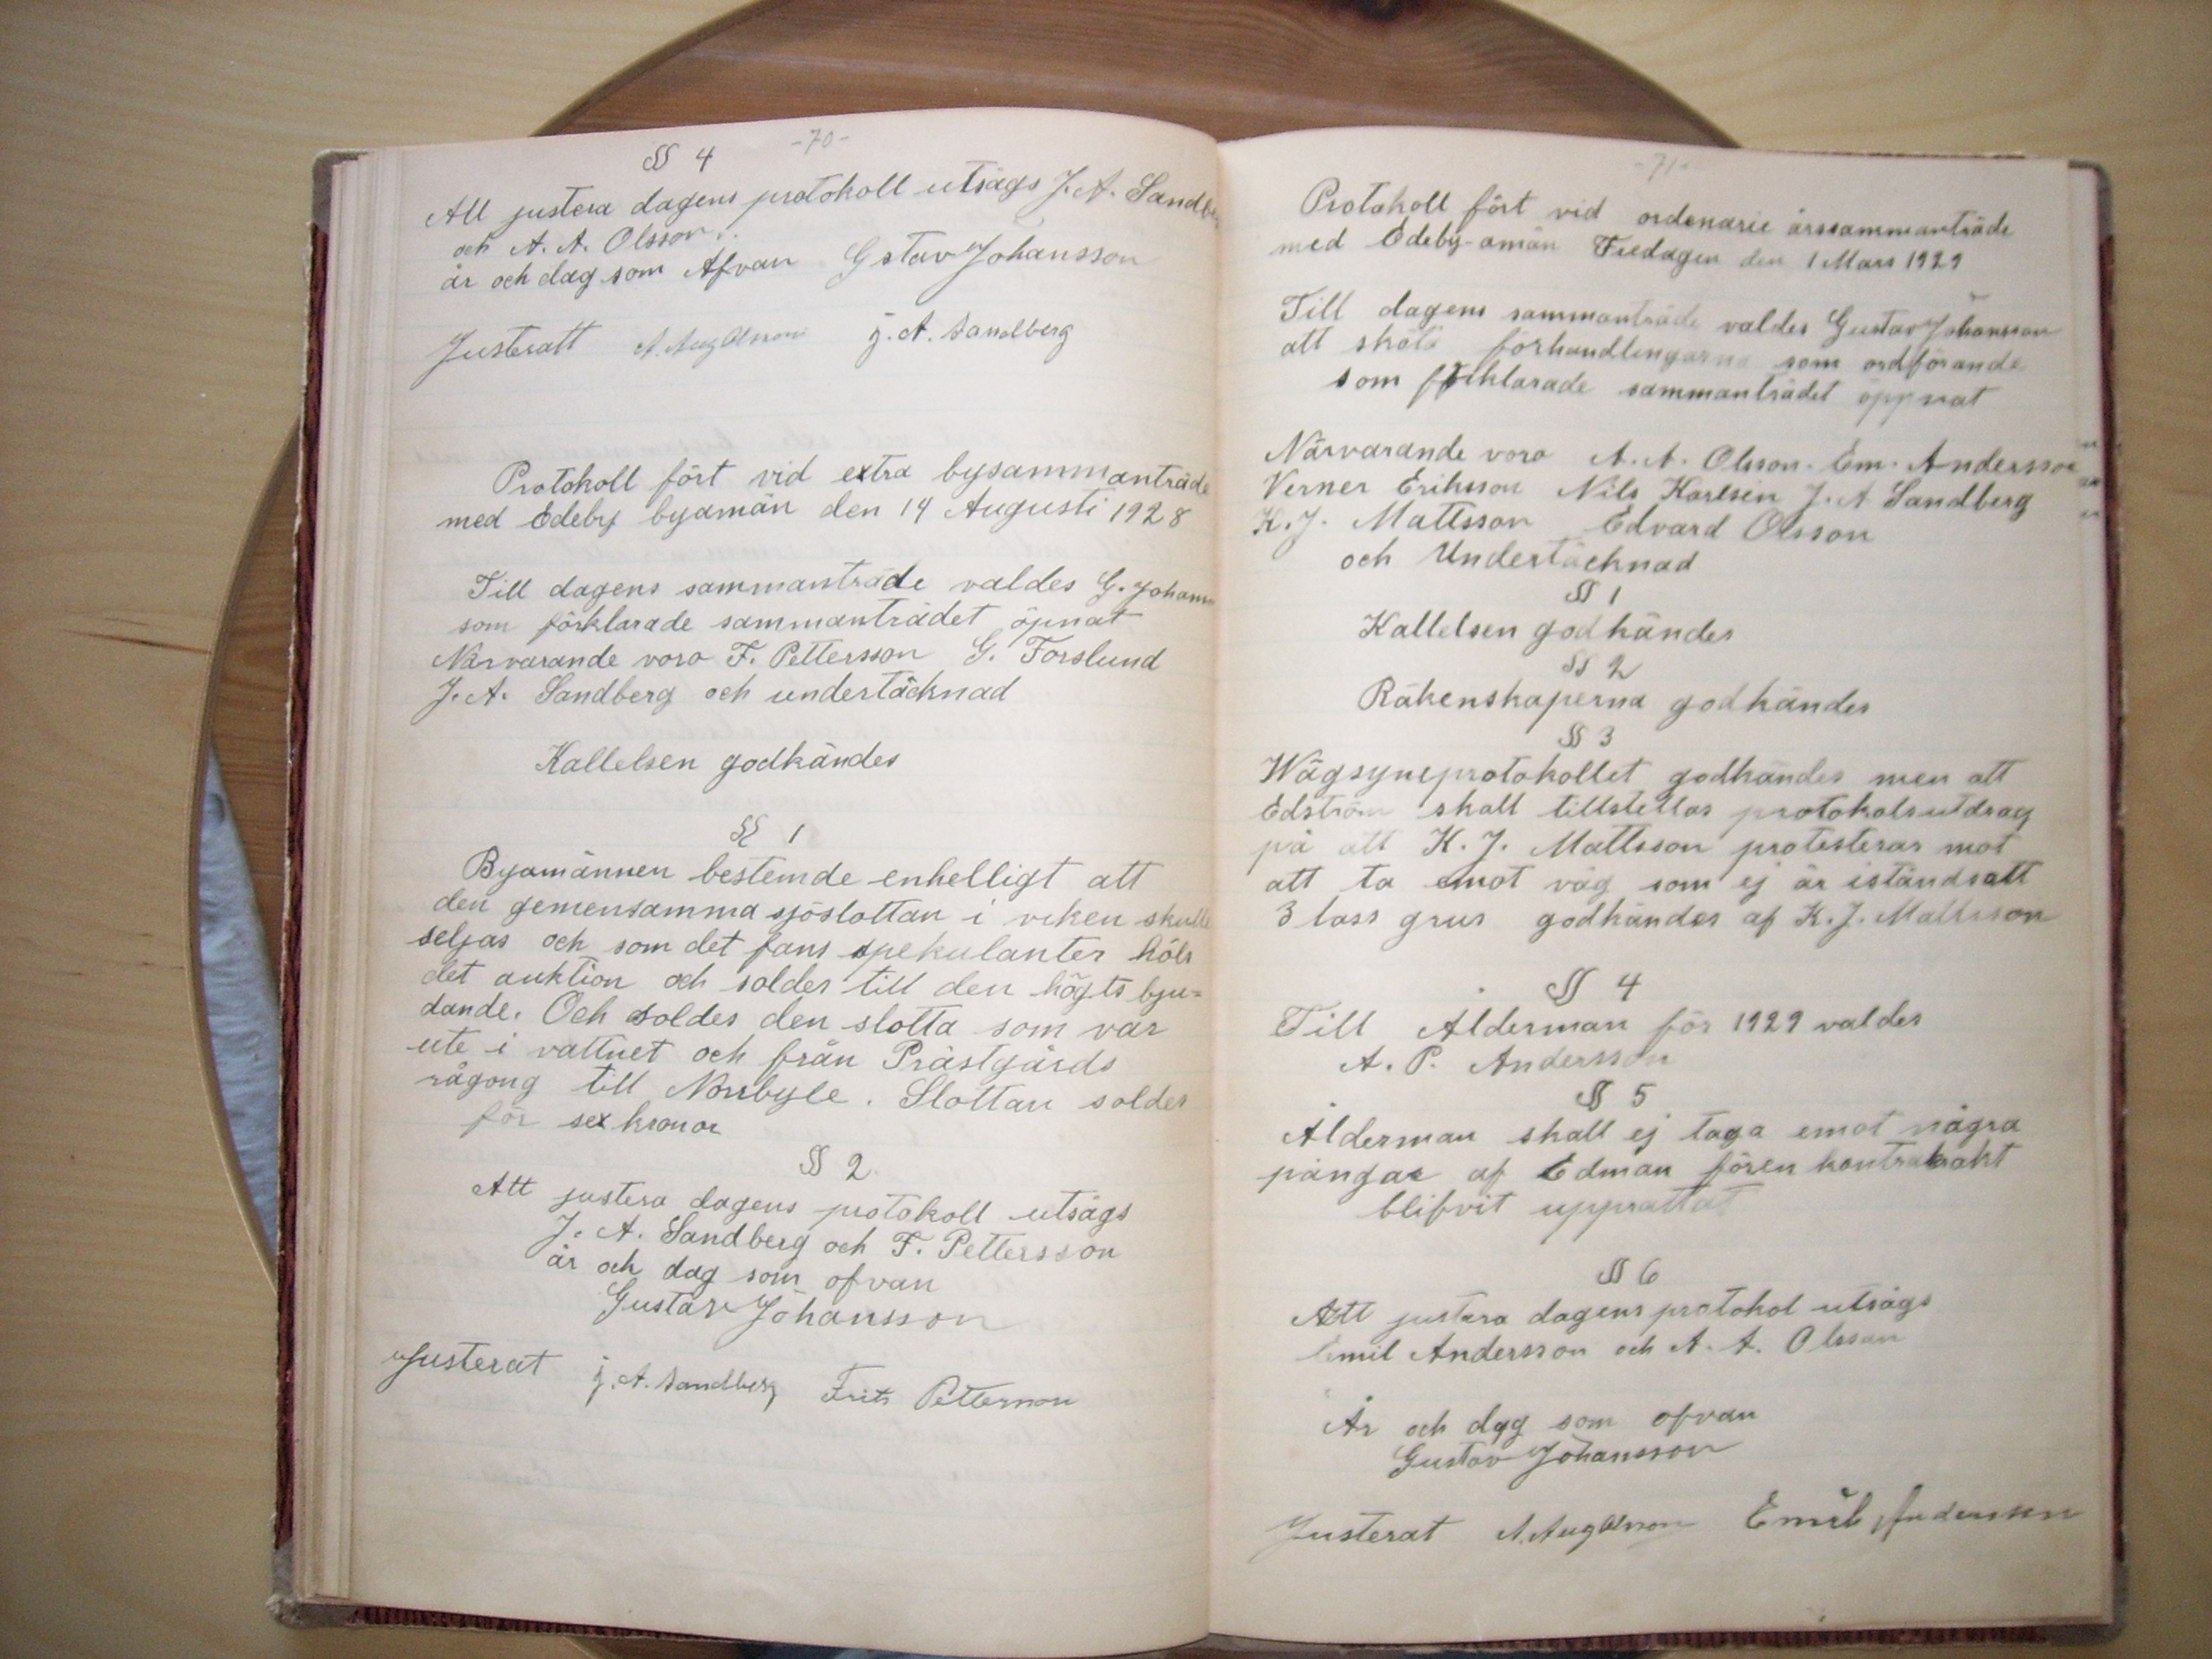 -70-
§§ 4
Att justera dagens protokoll utsågs J. A. Sandberg
och A. A. Olsson.
år och dag som Afvan Gstav Johansson
Justeratt A. Aug Olsson j. A. Sandberg
Protokoll fört vid extra bysammanträde
med Edeby byamän den 14 Augusti 1928
Till dagens sammanträde valdes G. Johanss
som förklarade sammanträdet öpnat
Närvarande voro F. Pettersson G. Forslund
J. A. Sandberg och undertäcknad
Kallelsen godkändes
§§ 1
Byamännen bestemde enhelligt att
den gemensamma sjöslottan i viken skulle
seljas och som det fans spekulanter höls
det auktion och soldes till den högts bju=
dande. Och soldes den slotta som var
ute i vattnet och från Prästgårds
rågong till Norrbyle. Slottan soldes
för sex kronor
§§ 2.
Att justera dagens protokoll utsågs
J. A. Sandberg och F. Pettersson
år och dag som ofvan
Gustav Johansson
Justerat j. A. Sandberg Frits Pettersson
-71-
Protokoll fört vid ordenarie årssammanträde
med Edeby-amän Fredagen den 1 Mars 1929
Till dagens sammanträde valdes Gustav Johansson
att sköta förhandlingarna som ordförande
som förklarade sammanträdet öppnat
Närvarande voro A. A. Olsson. Em. Andersson
Verner Eriksson Nils Karlsen J. A Sandberg
K. J. Mattsson Edvard Olsson
och Undertäcknad
§§ 1
Kallelsen godkändes
§§ 2
Räkenskaperna godkändes
§§ 3
Wägsyneprotokollet godkändes men att
Edström skall tillstellas protokolsutdrag
på att K. J. Mattsson protesterar mot
att ta emot väg som ej är iståndsatt
3 lass grus godkändes af K. J. Mattsson
§§ 4
Till Ålderman för 1929 valdes
A. P. Andersson
§§ 5
Ålderman skall ej taga emot några
pängar af Edman fören kontrakrakt
blifvit upprättat
§§ 6
Att justera dagens protokol utsågs
Emil Andersson och A. A. Olsson
År och dag som ofvan
Gustav Johansson
Justerat A. Aug Olsson Emil Andersson